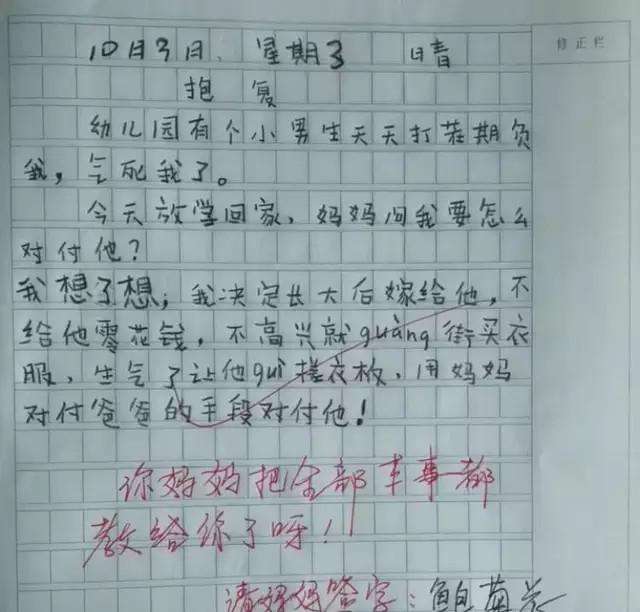 修正栏
10月3日、星期3 晴
抱复
幼儿园有个小男生天天打茬期负
我，气死我了。
今天放学回家、妈妈问我要怎么
对付他？
我想了想；我决定长大后嫁给他，不
给他零花钱，不高兴就guàng街买衣
服、生气了让他guì搓衣板、用妈妈
对付爸爸的手段对付他！
你妈妈把全部本事都
教给你了呀！！
请妈妈签字：